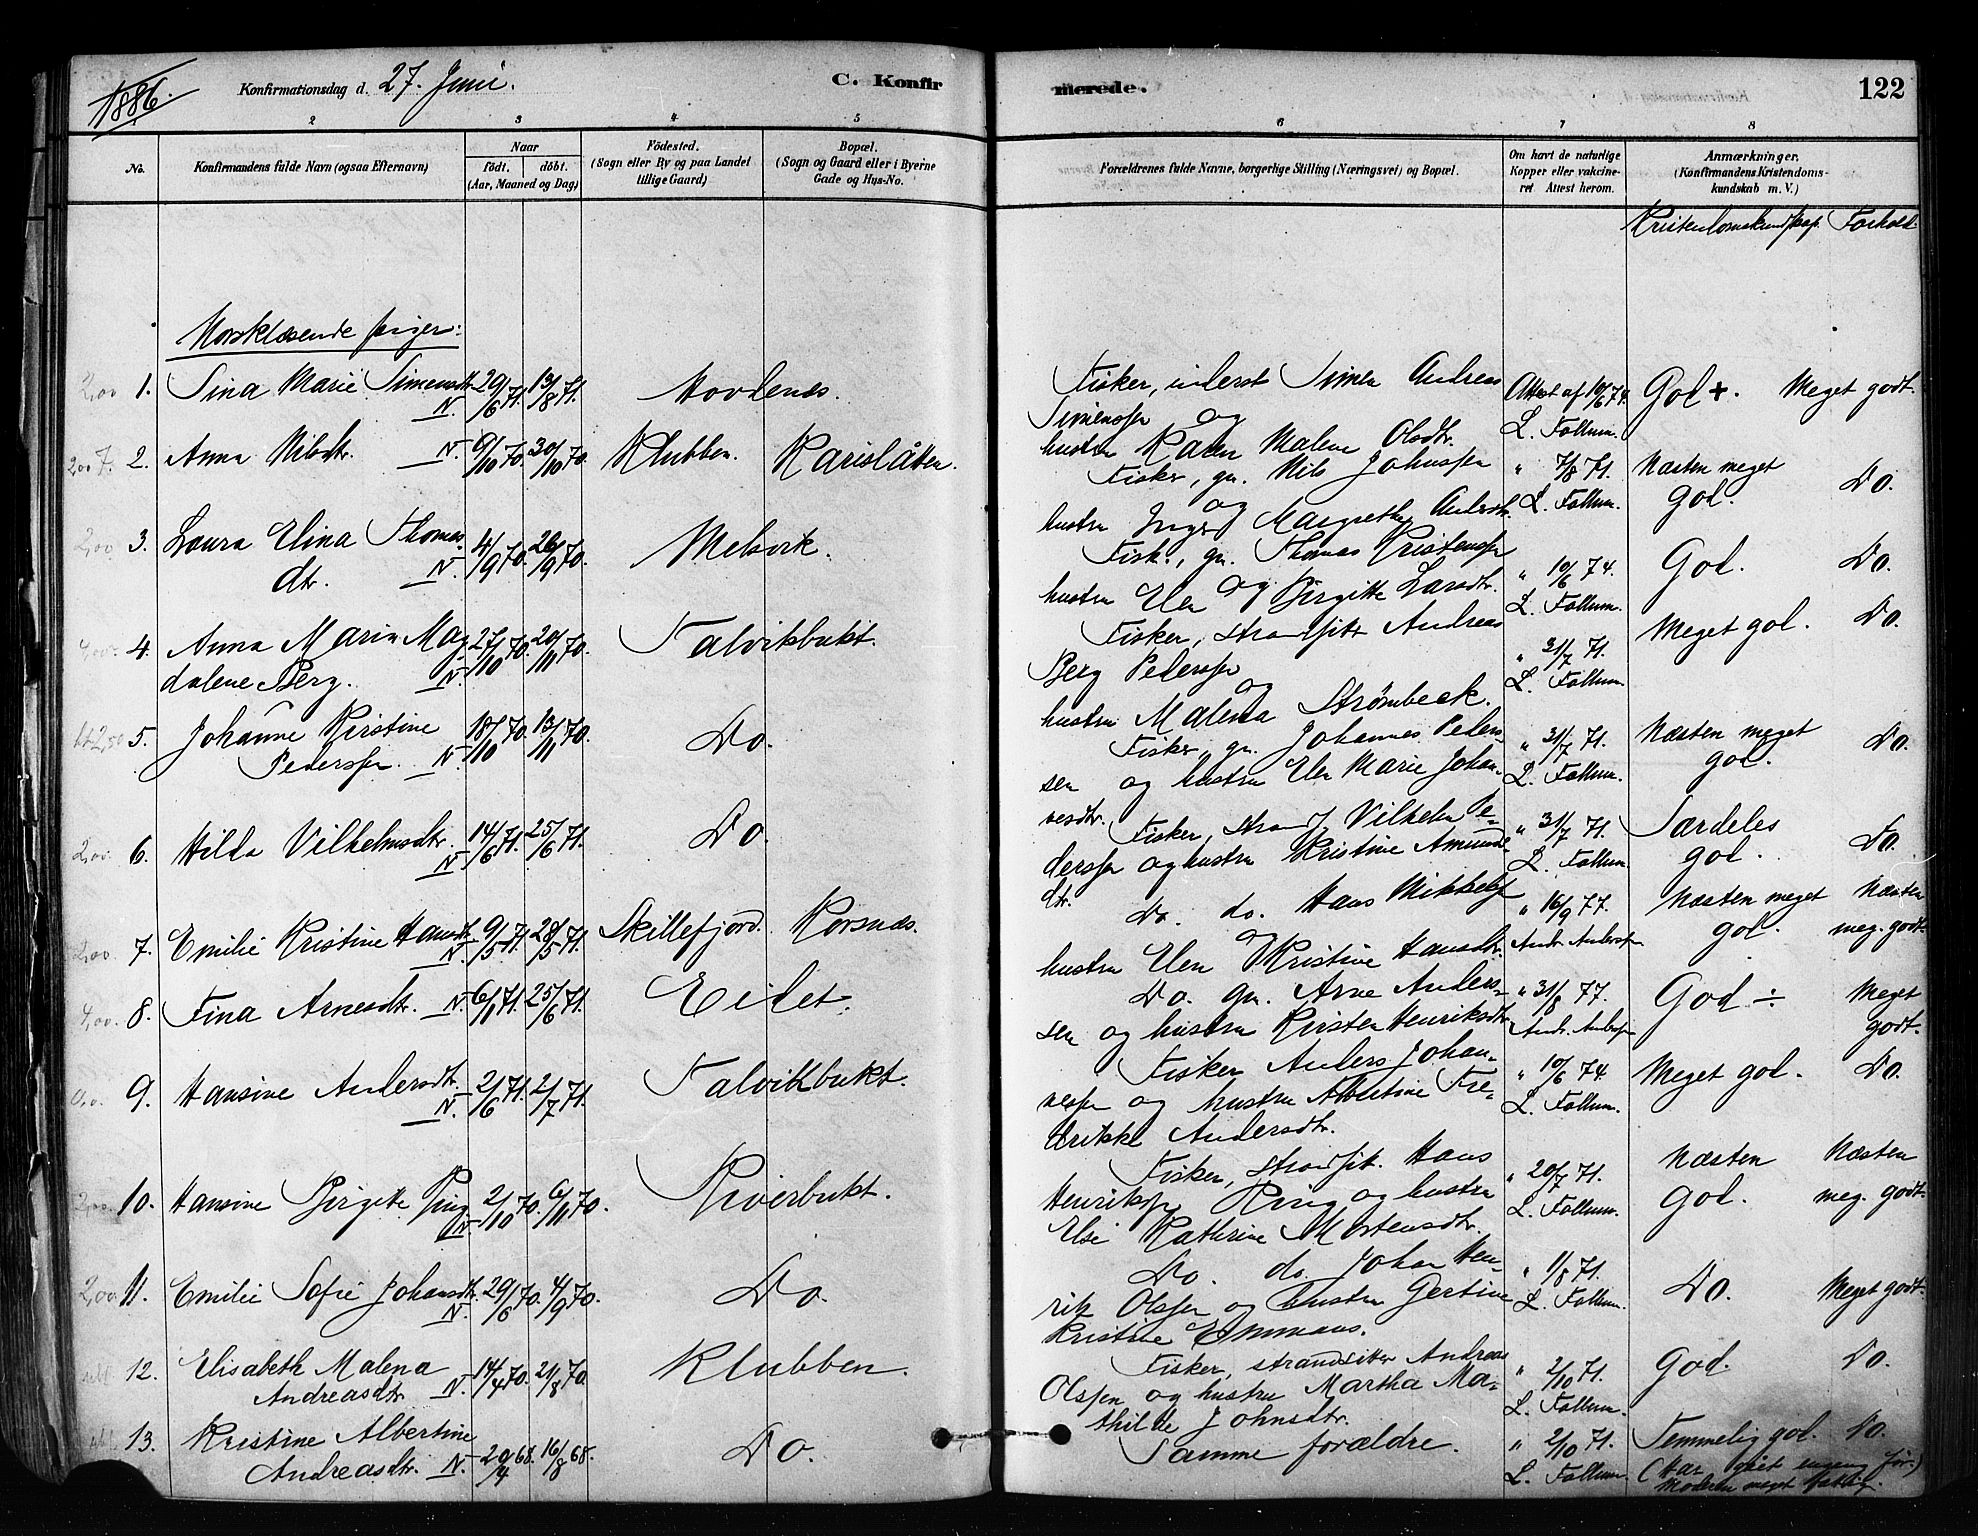 1886.
Konfirmationsdag d. 27. Juni.
C. Konfirmerede.
122
2 3 4 5 6 7 8
No.
Konfirmandens fulde Navn (ogsaa Efternavn)
Naar
født. døbt.
(Aar, Maaned og Dag)
Fødested.
(Sogn eller By og paa Landet
tillige Gaard)
Bopæl.
(Sogn og Gaard eller i Byerne
Gade og Hys-No.
Forældrenes fulde Navne, borgerlige Stilling (Næringsvei) og Bopæl.
Om havt de naturlige
Kopper eller vakcine-
ret Attest herom.
Anmærkninger.
(Konfirmandens Kristendoms-
kundskab m. V.)
Kristendomskundskap. Forhold.
Norsklæsende piger:
2,00 1. Sina Marie Simensdtr. N. 29/6 71. 13/8 71. Hovdenes.
Fisker, inderst Simen Andreas
Simenssen og
hustru Karen Malene Olsdtr.
Attest af 10/6 74.
L. Follum.
God +. Meget godt.
2. Anna Nilsdtr. N. 9/10 70. 30/10 70. Klubben. Karislåtten.
Fisker, gm. Nils Johnssen
og
hustru Inger Margrethe Andersdtr.
" 7/8 71.
L. Follum.
Næsten meget
god.
Do.
2,00 3. Laura Elina Thomas
dtr. N. 4/9 70. 26/9 70. Melsvik.
Fisk., gm. Thomas Kristenssen
og
hustru Elen Birgitte Larsdtr.
" 10/6 74.
L. Follum.
God. Do.
4,00 4. Anna Marin Mag
dalene Berg. N. 27/10 70. 20/11 70. Talvikbukt.
Fisker, strandsitter Andreas
Berg Pederssen
og
hustru Malena Strømbeck.
" 31/7 71.
L. Follum.
Meget god. Do.
5. Johanne Kirstine
Pederssen. N. 18/10 70. 13/11 70. Do.
Fisker, gm. Johannes Peders-
sen og hustru Elen Marie Johan-
nesdtr.
" 31/7 71.
L. Follum.
Næsten meget
god.
Do.
2,00 6. Hilda Vilhelmsdtr. N. 14/6 71. 25/6 71. Do.
Fisker, strands. Vilhelm Pe-
derssen og hustru Kristine Amunds
dtr.
" 31/7 71.
L. Follum.
Særdeles
god.
Do.
2,00. 7. Emilie Kristine Hansdtr. N. 9/5 71. 28/5 71. Skillefjord. Korsnes.
Do. do. Hans Mikkelss.
og
hustru Elen Kristine Hansdtr.
" 16/9 77.
Andr. Anderssen
Næsten meget
god.
Næsten
meg. godt.
4,00. 8. Fina Arnesdtr. N. 6/1 71. 25/6 71. Eidet.
Do. gm. Arne Anders-
sen og hustru Kirsten Henriksdtr.
" 31/8 77.
Andr. Anderssen
God ÷ Meget
godt.
9. Hansine Andersdtr. N. 2/6 71. 2/7 71. Talvikbukt.
Fisker Anders Johan-
nessen og hustru Albertine Fre-
drikke Andersdtr.
" 10/6 74.
L. Follum.
Meget god. Do.
2,00. 10. Hansine Birgitte Ring N. 2/10 70. 6/11 70. Kiverbukt.
Fisker, strandsit. Hans
Henrikssen Ring og hustru
Elsi Kathrine Mortensdtr.
" 20/7 71.
L. Follum.
Næsten
god.
Næsten
meg. godt.
2,00 11. Emilie Sofie Johansdtr. N. 29/6 70. 4/9 70. Do.
Do. do. Johan Hen-
rik Olssen og hustru Gertine
Kristine Emmaus.
" 1/8 71.
L. Follum.
Do. Meget godt.
12. Elisabeth Malena
Andreasdtr. N. 14/4 70. 21/8 70. Klubben.
Fisker, strandsitter Andreas
Olssen og hustru Martha Ma-
thilde Johnsdtr.
" 2/10 71.
L. Follum.
God. Do.
13. Kristine Albertine
Andreasdtr. N. 20/4 68. 16/8 68. Do.
Samme forældre.
" 2/10 71.
L. Follum.
Temmelig god. Do.
(Har gået engang før.)
Moderen meget fattig.